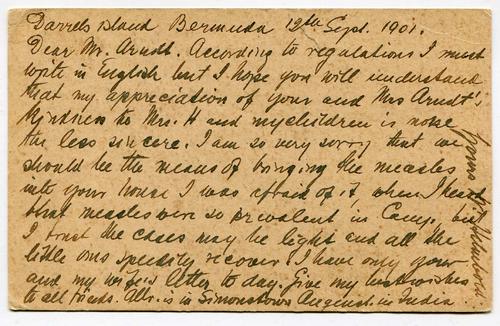 Darrels island Bermuda 12th Sept. 1901.
Dear Mr. Arndt. According to regulations I must
write in English but I hope you will understand
that my appreciation of your and Mrs Arndt's
kindness to Mrs. H and my children is none
the less sincere. I am so very sorry that we
should be the means of bringing the measles
into your house I was afraid of it, when I heard
that measles were so prevalent in Camp, but
I trust the cases may be light and all the
little ones speedily recover. I have only your
and my wife's letter to day. Give my best wishes
to all friends. is in Simonstown in India
Yours